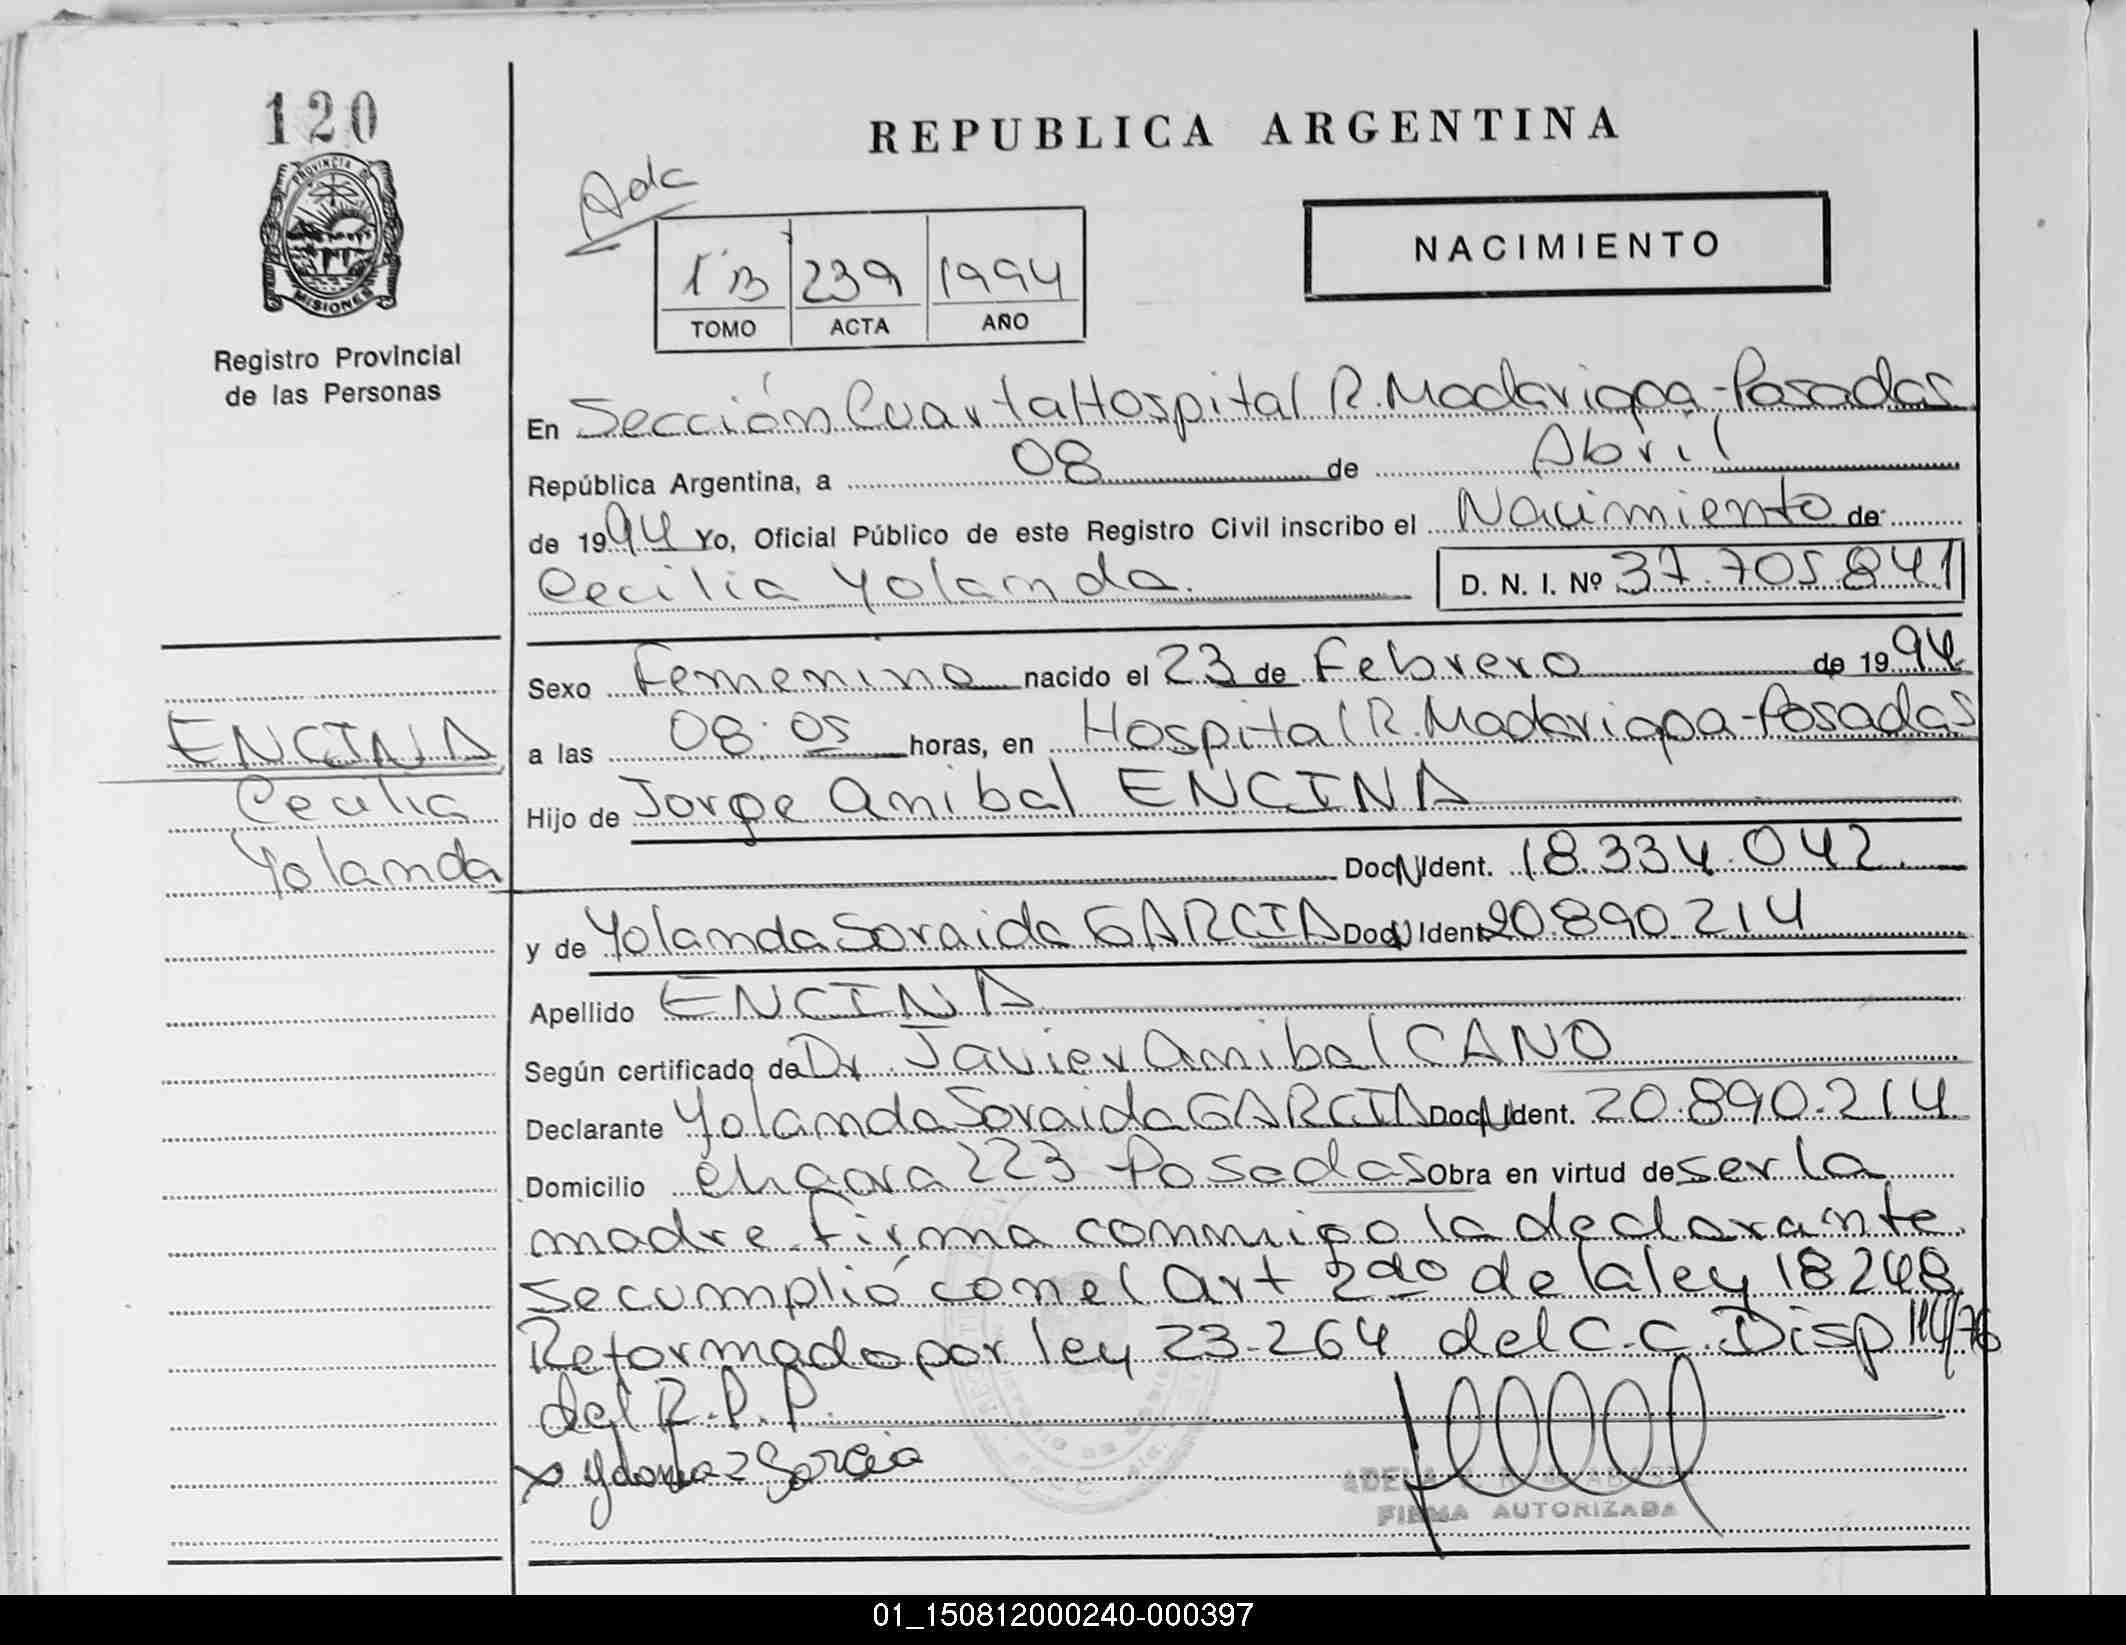 120
PROVINCIA DE
MISIONES
Registro Provincial
de las Personas
REPUBLICA ARGENTINA
Ada
NACIMIENTO
1°B 239 1994
TOMO ACTA AÑO
En Sección Cuarta Hospital R. Madariaga - Posadas
República Argentina, a 08 de Abril
de 1994 Yo, Oficial Público de este Registro Civil inscribo el Nacimiento de
Cecilia Yolanda. D. N. I. Nº 37.705.841
Sexo Femenino nacido el 23 de Febrero de 1994
a las 08:05 horas, en Hospital R. Madariaga - Posadas
Hijo de Jorge Anibal ENCINA
Doc N Ident. 18.334.042
y de Yolanda Soraida GARCIA Doc N Ident 20.890.214
Apellido ENCINA
Según certificado de Dr. Javier Anibal CANO
Declarante Yolanda Soraida GARCIA Doc N Ident. 20.890.214
Domicilio 223 Posadas Obra en virtud de ser la
madre firma conmigo la declarante.
Se cumplió con el Art 2do de la ley 18248
Reformado por ley 23.264 del C.C. Disp 114/76
del R.P.P.
ENCINA
Cecilia
Yolanda
x Garcia
FIRMA AUTORIZADA
01_150812000240-000397